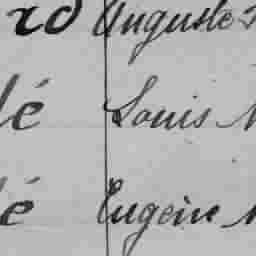 rd Auguste
lé Louis
é Eugène